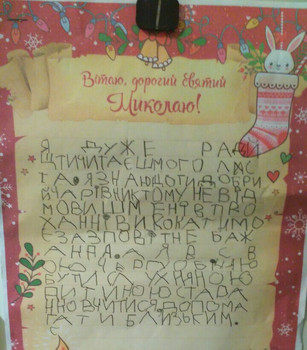 Вітаю, дорогий Святий
Миколаю!
Я ДУЖЕ РАДИ
Й ЩО ТИ ЧИТАЄШ МОГО ЛИС
ТА. Я ЗНАЮ ЩО ТИ ДОБРИ
Й ЧАРІВНИК ТОМУ НЕ ВІД
МОВИШ МЕНІ В
ХАННІ ВИКОНАТИ МО
Є ЗАПОВІТНЕ БАЖ
АННЯ. А Я
БУ
ТИ СЛУХНЯНОЮ
ДИТИНОЮ СТАРА
ННО ВЧИТИСЯ, ДОПОМА
ГАТИ БЛИЗЬКИМ.